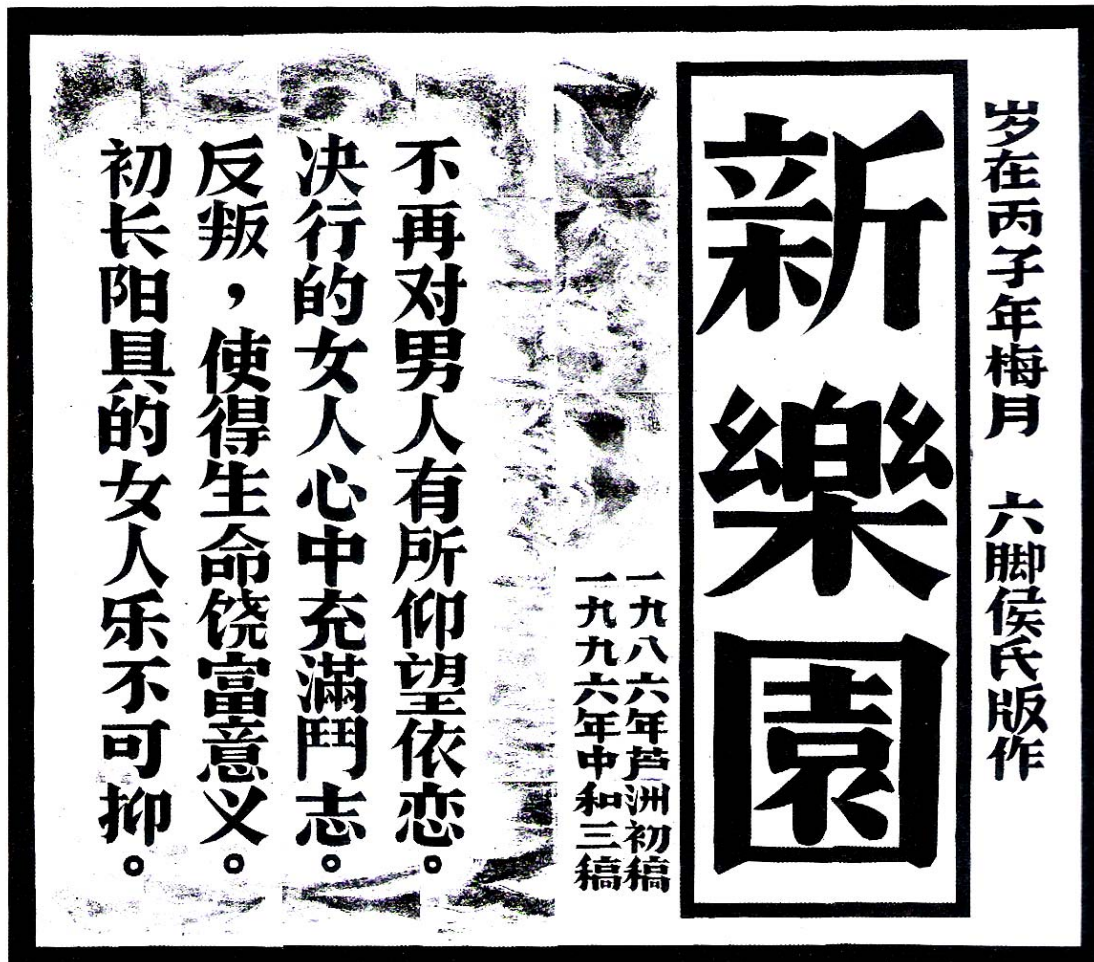 岁在丙子年梅月　六脚侯氏版作
新樂園
一九八六年芦洲初稿
一九九六年中和三稿
不再对男人有所仰望依恋。
决行的女人心中充滿鬥志。
反叛，使得生命饶富意义。
初长阳具的女人乐不可抑。